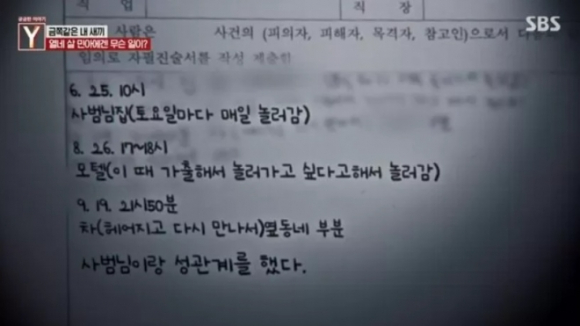 직 업 직 장
궁금한 이야기 Y
금쪽같은 내 새끼
열네 살 민아에겐 무슨 일이?
SBS
사람은 사건의 (피의자, 피해자, 목격자, 참고인)으로서
임의로 자필진술서를 작성 제출함
6. 25. 10시
사범님집(토요일마다 매일 놀러감)
8. 26. 17~18시
모텔(이 때 가출해서 놀러가고 싶다고해서 놀러감)
9. 19. 21시50분
차(헤어지고 다시 만나서)옆동네 부분
사범님이랑 성관계를 했다.